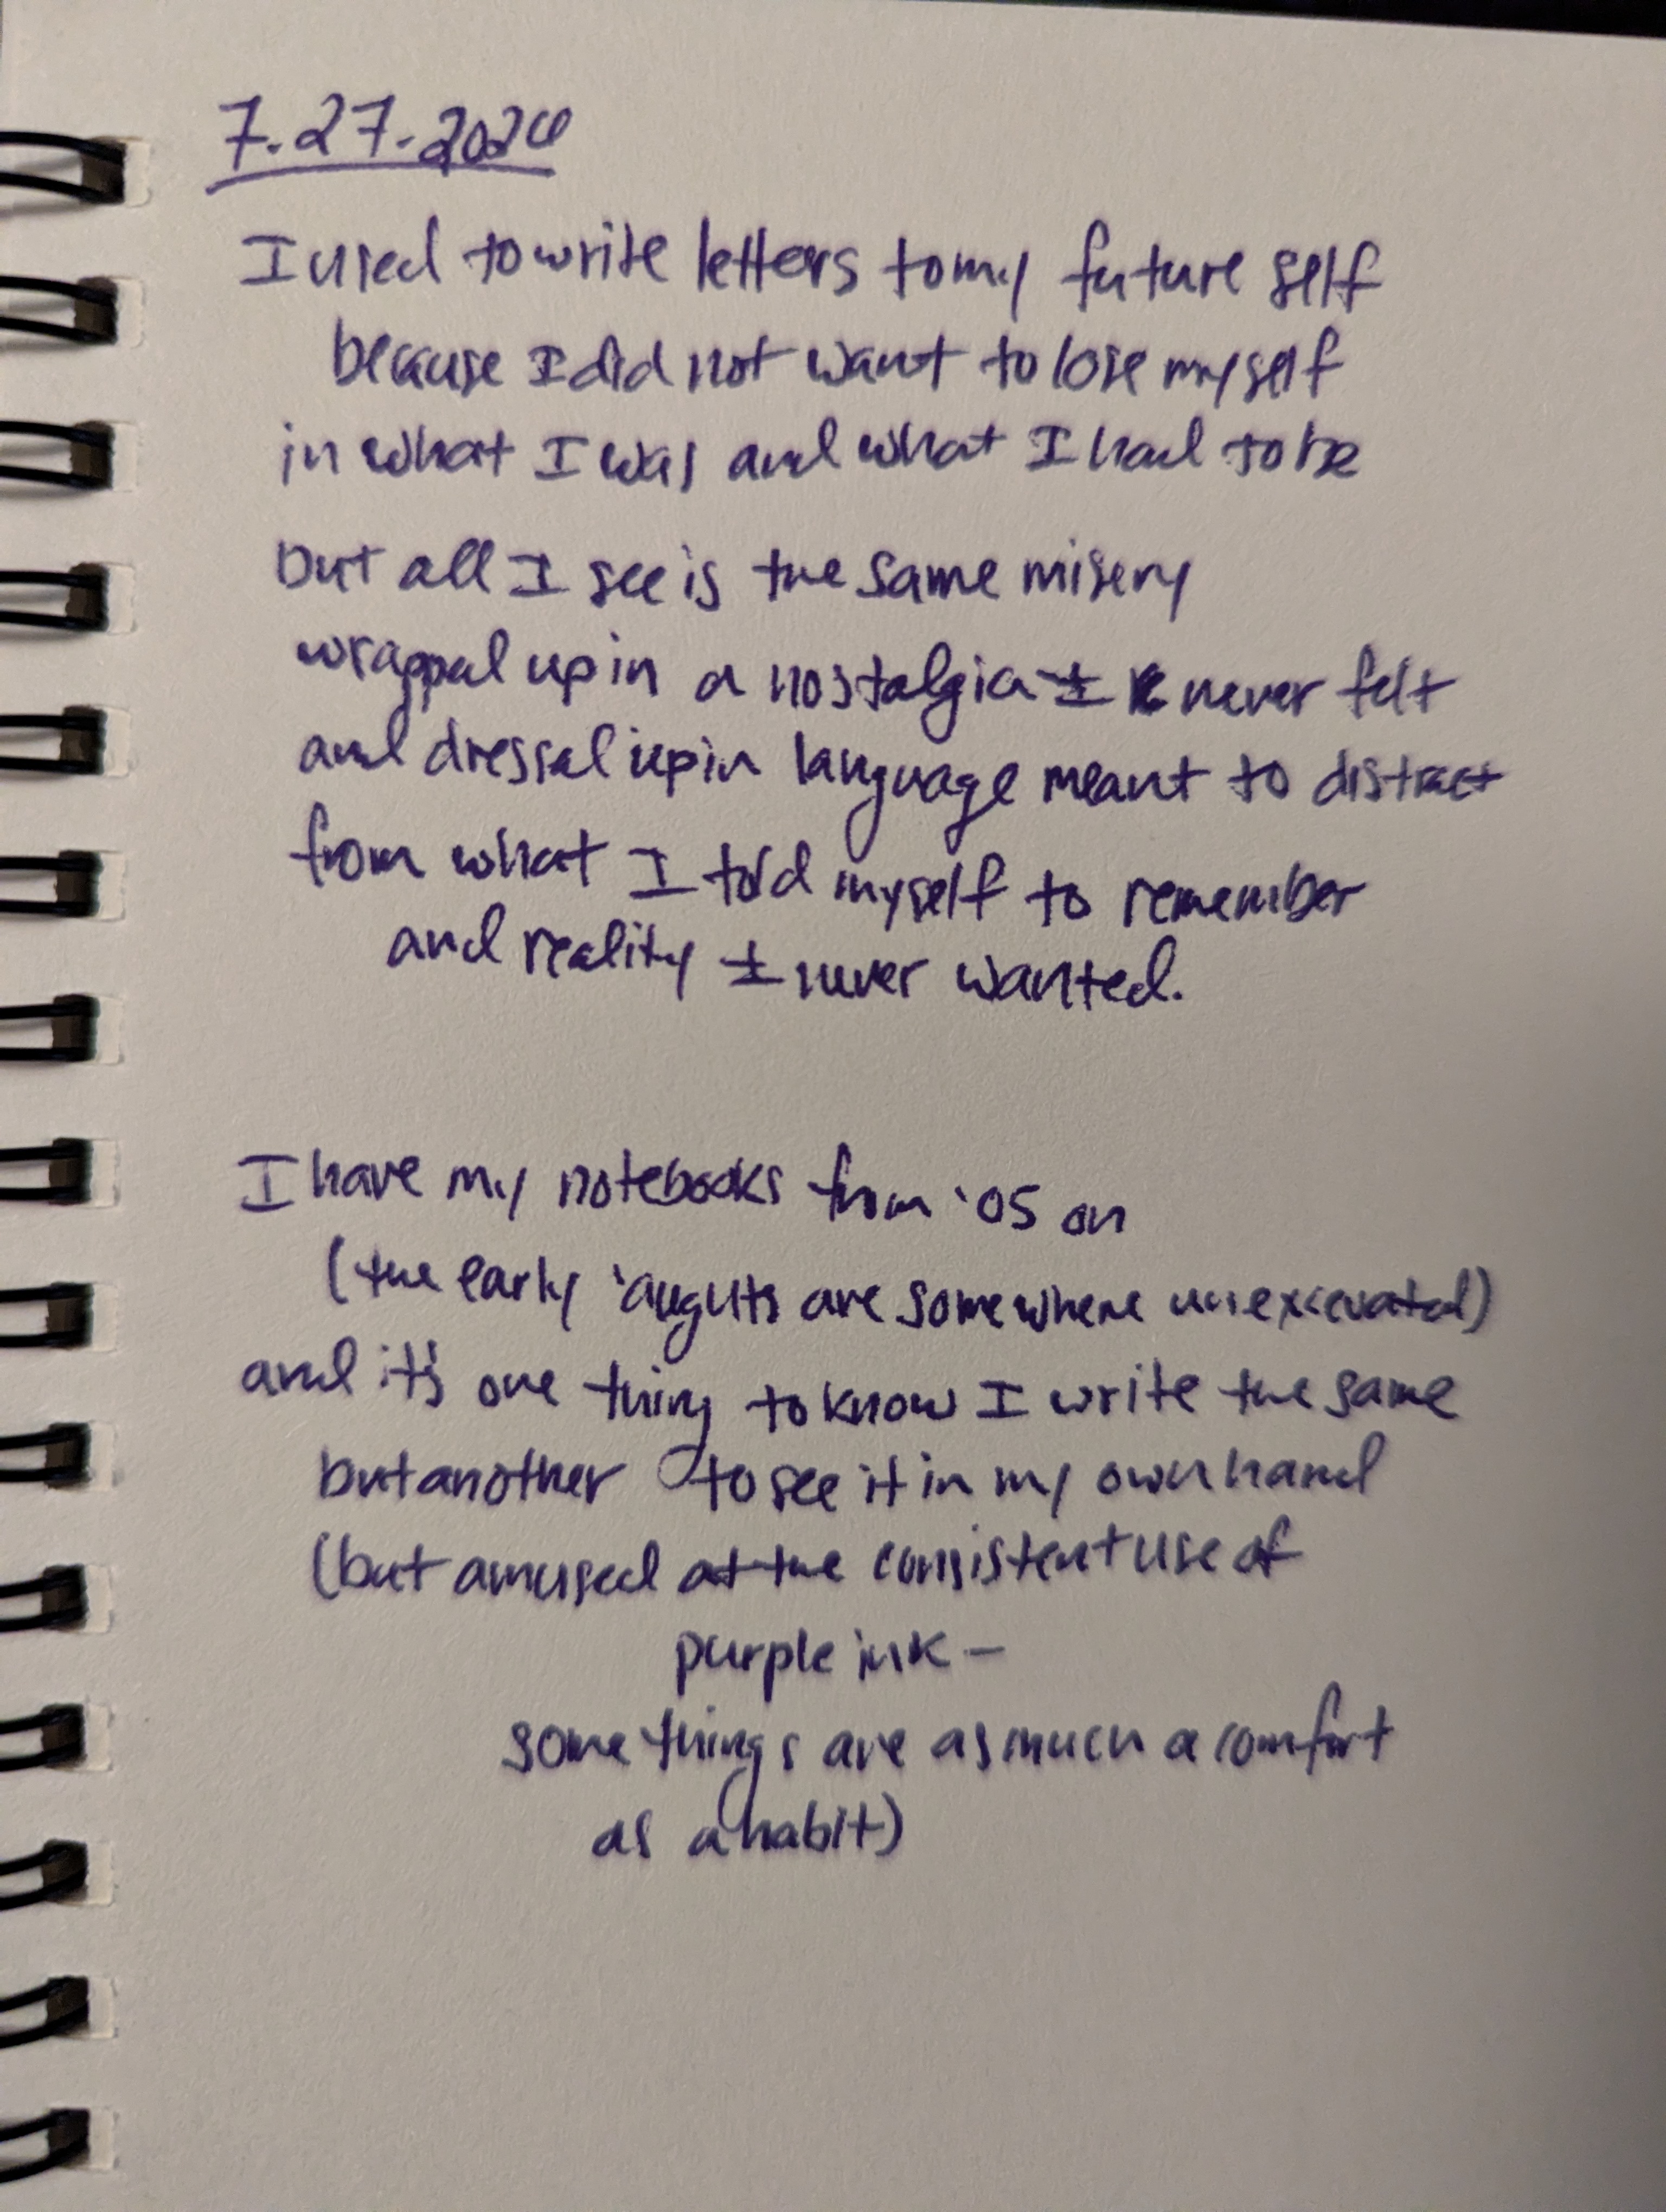 7.27.2026
I used to write letters to my future self
because I did not want to lose myself
in what I was and what I had to be
but all I see is the same misery
wrapped up in a nostalgia I never felt
and dressed up in language meant to distract
from what I told myself to remember
and reality I never wanted.
I have my notebooks from '05 on
(the early 'aughts are somewhere unexcavated)
and it's one thing to know I write the same
but another to see it in my own hand
(but amused at the consistent use of
purple ink —
some things are as much a comfort
as a habit)